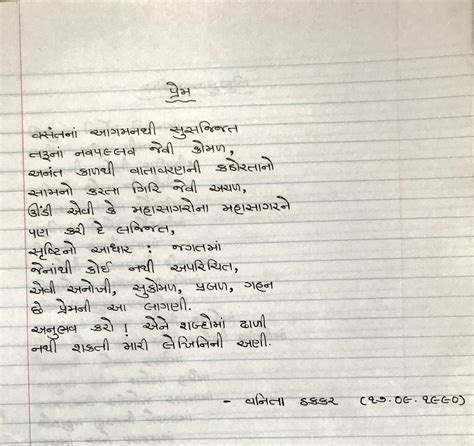 પ્રેમ
વસંતનાં આગમનથી સુસજ્જિત
તરૂનાં નવપલ્લવ જેવી કોમળ,
અનંત કાળથી વાતાવરણની કઠોરતાનો
સામનો કરતા ગિરિ જેવી અચળ,
ઊંડી એવી કે મહાસાગરોના મહાસાગરને
પણ કરી દે લજ્જિત,
સૃષ્ટિનો આધાર : જગતમાં
જેનાથી કોઈ નથી અપરિચિત,
એવી અનોખી, સુકોમળ, પ્રબળ, ગહન
છે પ્રેમની આ લાગણી.
અનુભવ કરો ! એને શબ્દોમાં ઢાળી
નથી શકતી મારી લેખિનિની અણી.
- વનિતા ઠક્કર (૧૭.૦૯.૧૯૯૦)